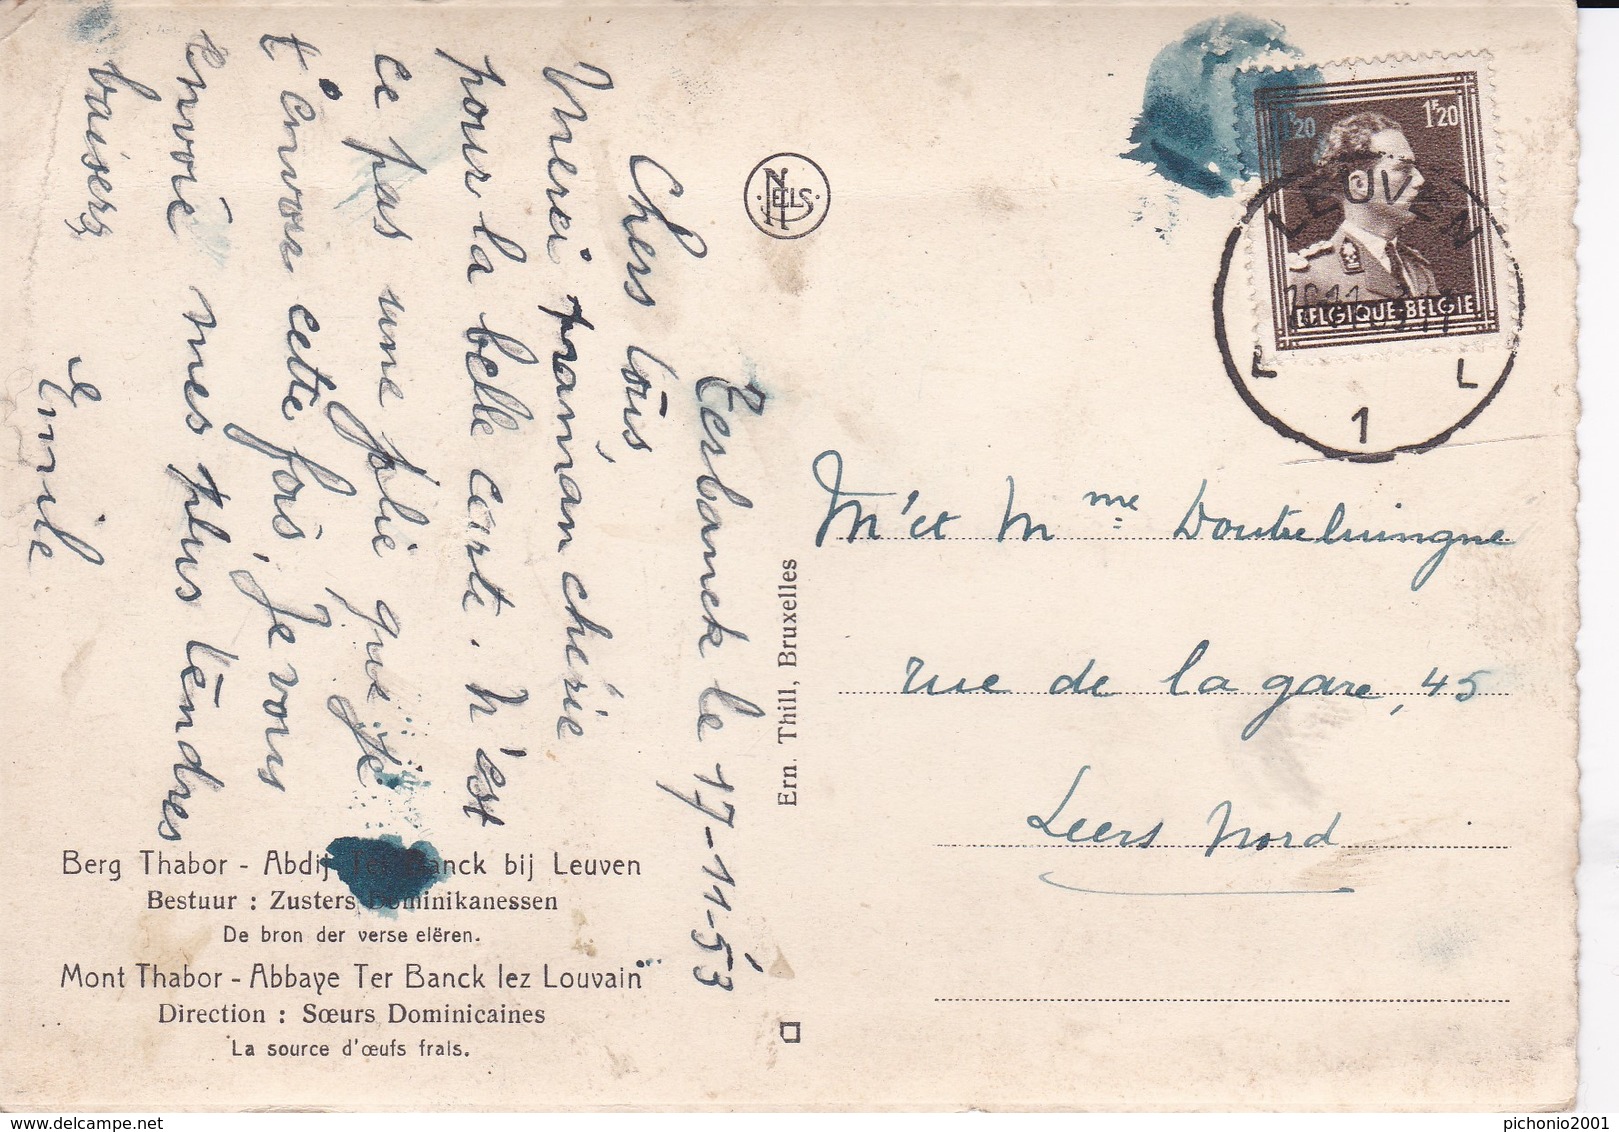 Terbanck le 17-11-53
Chers tous,
Merci maman chérie
pour la belle carte. N'est
ce pas une plie que je
t'envoie cette fois, Je vous
envoie mes plus tendres
baisers
Emile
Berg Thabor - Abdij Ter Banck bij Leuven
Bestuur : Zusters Dominikanessen
De bron der verse elëren.
Mont Thabor - Abbaye Ter Banck lez Louvain
Direction : Sœurs Dominicaines
La source d'œufs frais.
NELS
Ern. Thill, Bruxelles
1F20
1F20
BELGIQUE-BELGIE
LEUVEN
L
1
Mr et Mme Doutreluingne
rue de la gare, 45
Leers Nord
pichonio2001